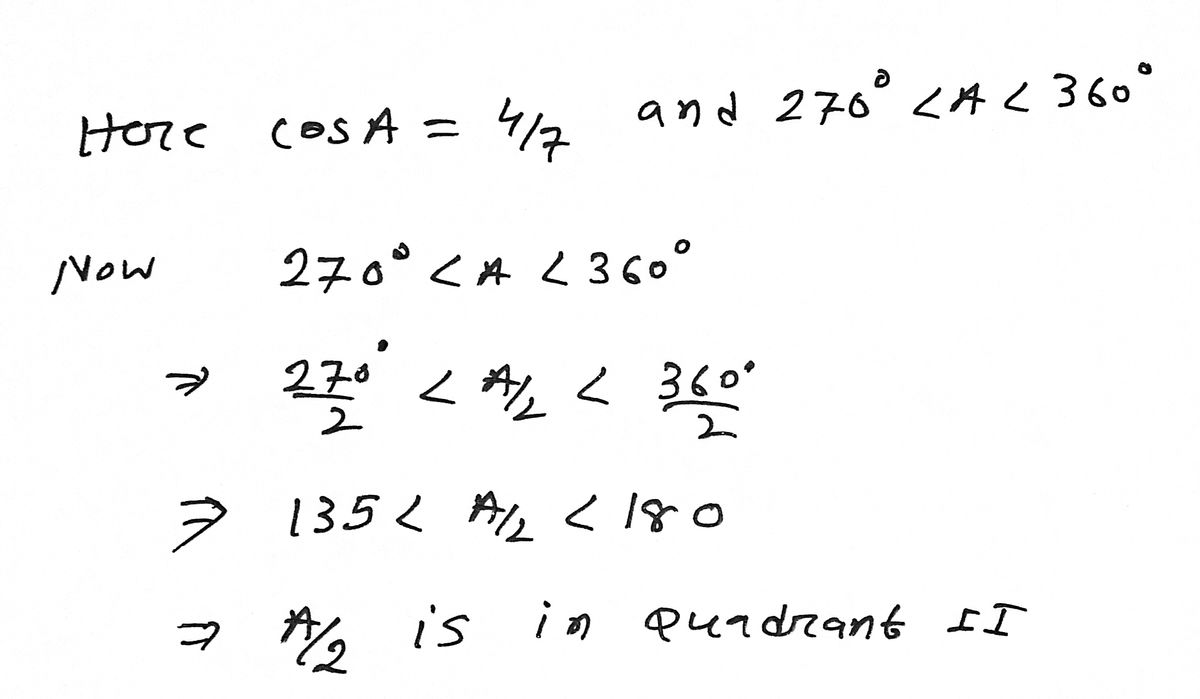 Here cos A = 4/7 and 270° < A < 360°
Now 270° < A < 360°
⇒ 270°/2 < A/2 < 360°/2
⇒ 135 < A/2 < 180
⇒ A/2 is in Quadrant II